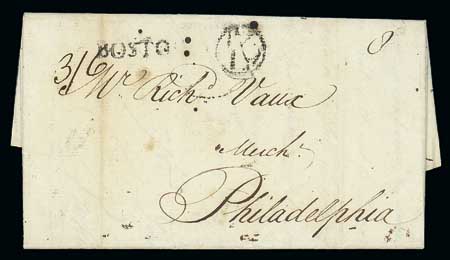 BOSTO
8
3/6
Mr Richd Vaux
Mercht
Philadelphia